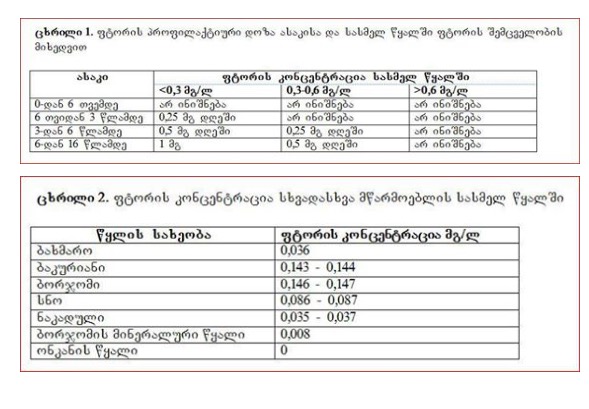 ცხრილი 1. ფტორის პროფილაქტიური დოზა ასაკისა და სასმელ წყალში ფტორის შემცველობის
მიხედვით
ასაკი ფტორის კონცენტრაცია სასმელ წყალში
<0,3 მგ/ლ 0,3-0,6 მგ/ლ >0,6 მგ/ლ
0-დან 6 თვემდე არ ინიშნება არ ინიშნება არ ინიშნება
6 თვიდან 3 წლამდე 0,25 მგ დღეში არ ინიშნება არ ინიშნება
3-დან 6 წლამდე 0,5 მგ დღეში 0,25 მგ დღეში არ ინიშნება
6-დან 16 წლამდე 1 მგ 0,5 მგ დღეში არ ინიშნება
ცხრილი 2. ფტორის კონცენტრაცია სხვადასხვა მწარმოებლის სასმელ წყალში
წყლის სახეობა ფტორის კონცენტრაცია მგ/ლ
ბახმარო 0,036
ბაკურიანი 0,143 - 0,144
ბორჯომი 0,146 - 0,147
სნო 0,086 - 0,087
ნაკადული 0,035 - 0,037
ბორჯომის მინერალური წყალი 0,008
ონკანის წყალი 0